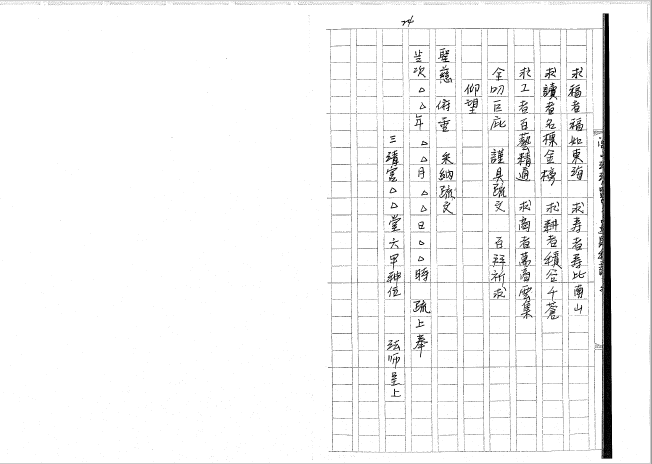 求福者福如東海 求寿者寿比南山
求讀者名標金榜 求耕者積谷千蒼
求工者百藝精通 求商者萬商雲集
全叨巨庇 謹具疏文 百拜祈求
仰望
聖慈 俯垂 采納疏文
岂次△△年△△月△△日△△時 疏上奉
三清宮△△堂六甲神位 法师呈上
24